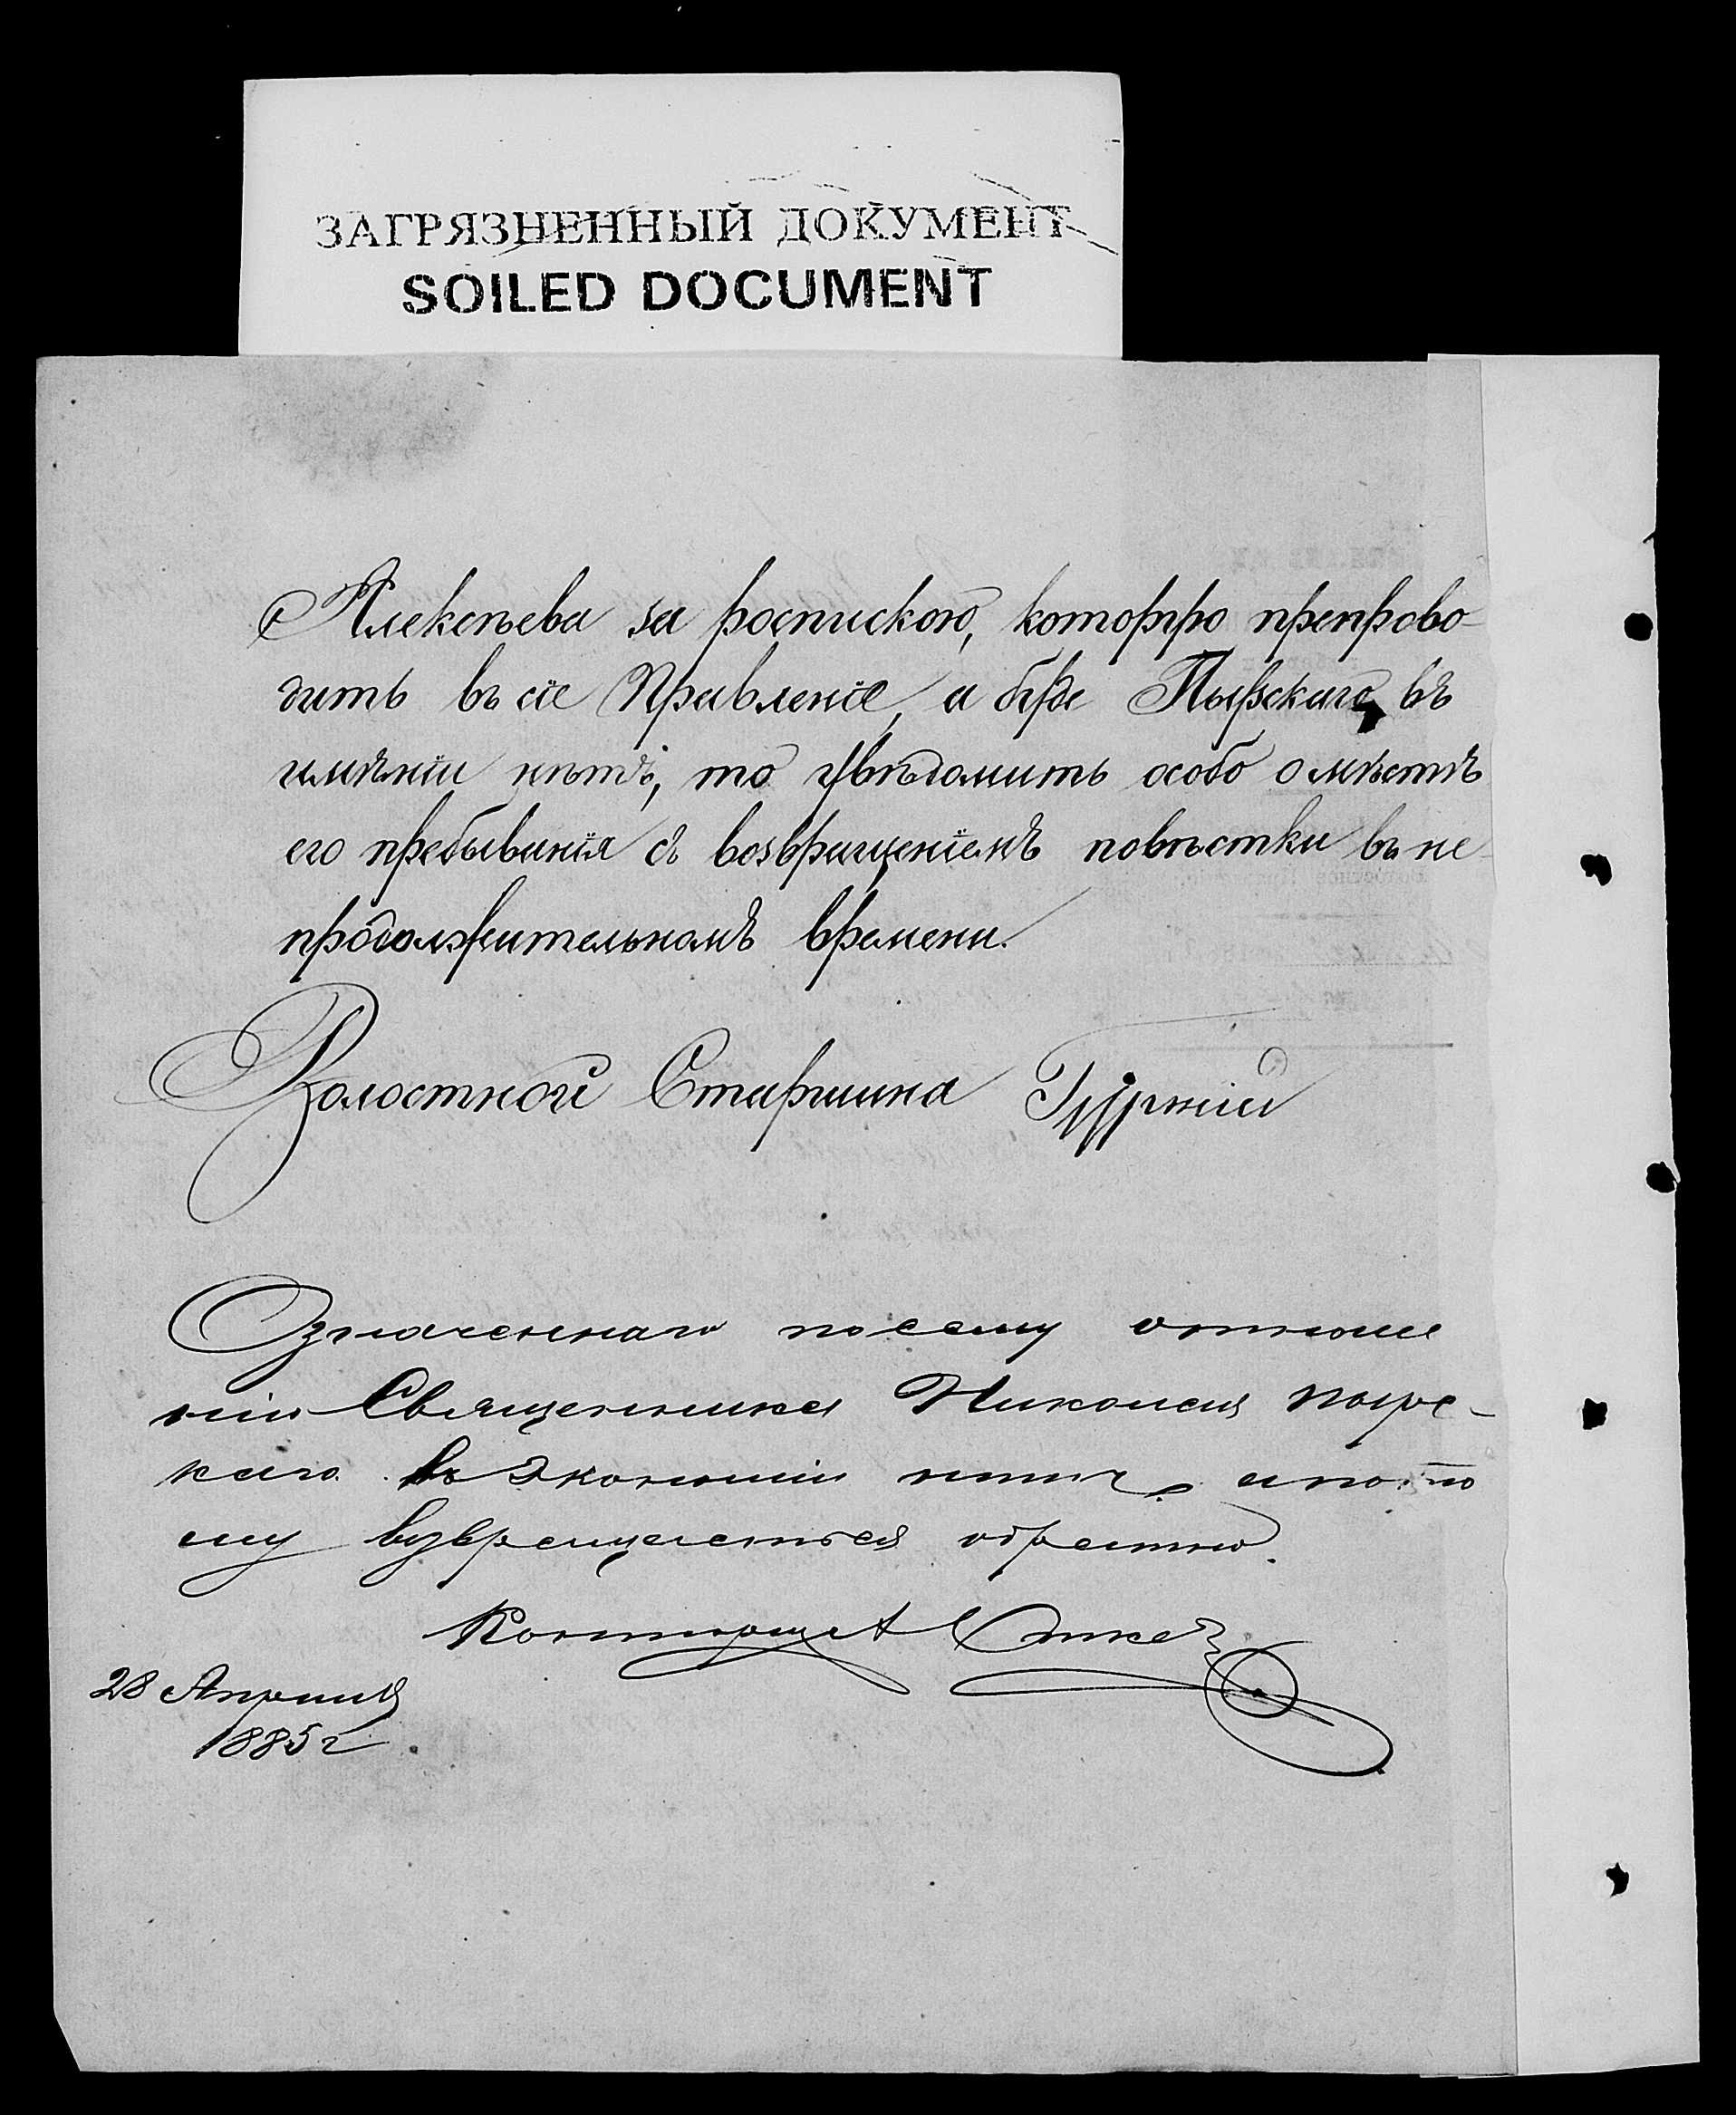 ЗАГРЯЗНЕННЫЙ ДОКУМЕНТ
SOILED DOCUMENT
Алексѣева за роспискою, которую препрово-
дить въ сіе Правленіе, а буде Пырскаго въ
имѣніи нѣтъ, то увѣдомить особо о мѣстѣ
его пребыванія съ возвращеніемъ повѣстки въ не-
продолжительномъ времени.
Волостной Старшина
Означеннаго по сему отноше
нію Священника Николая Пырс-
каго въ Экономіи нѣтъ, а пото
му возвращается обратно.
28 Апрѣля
1885 г